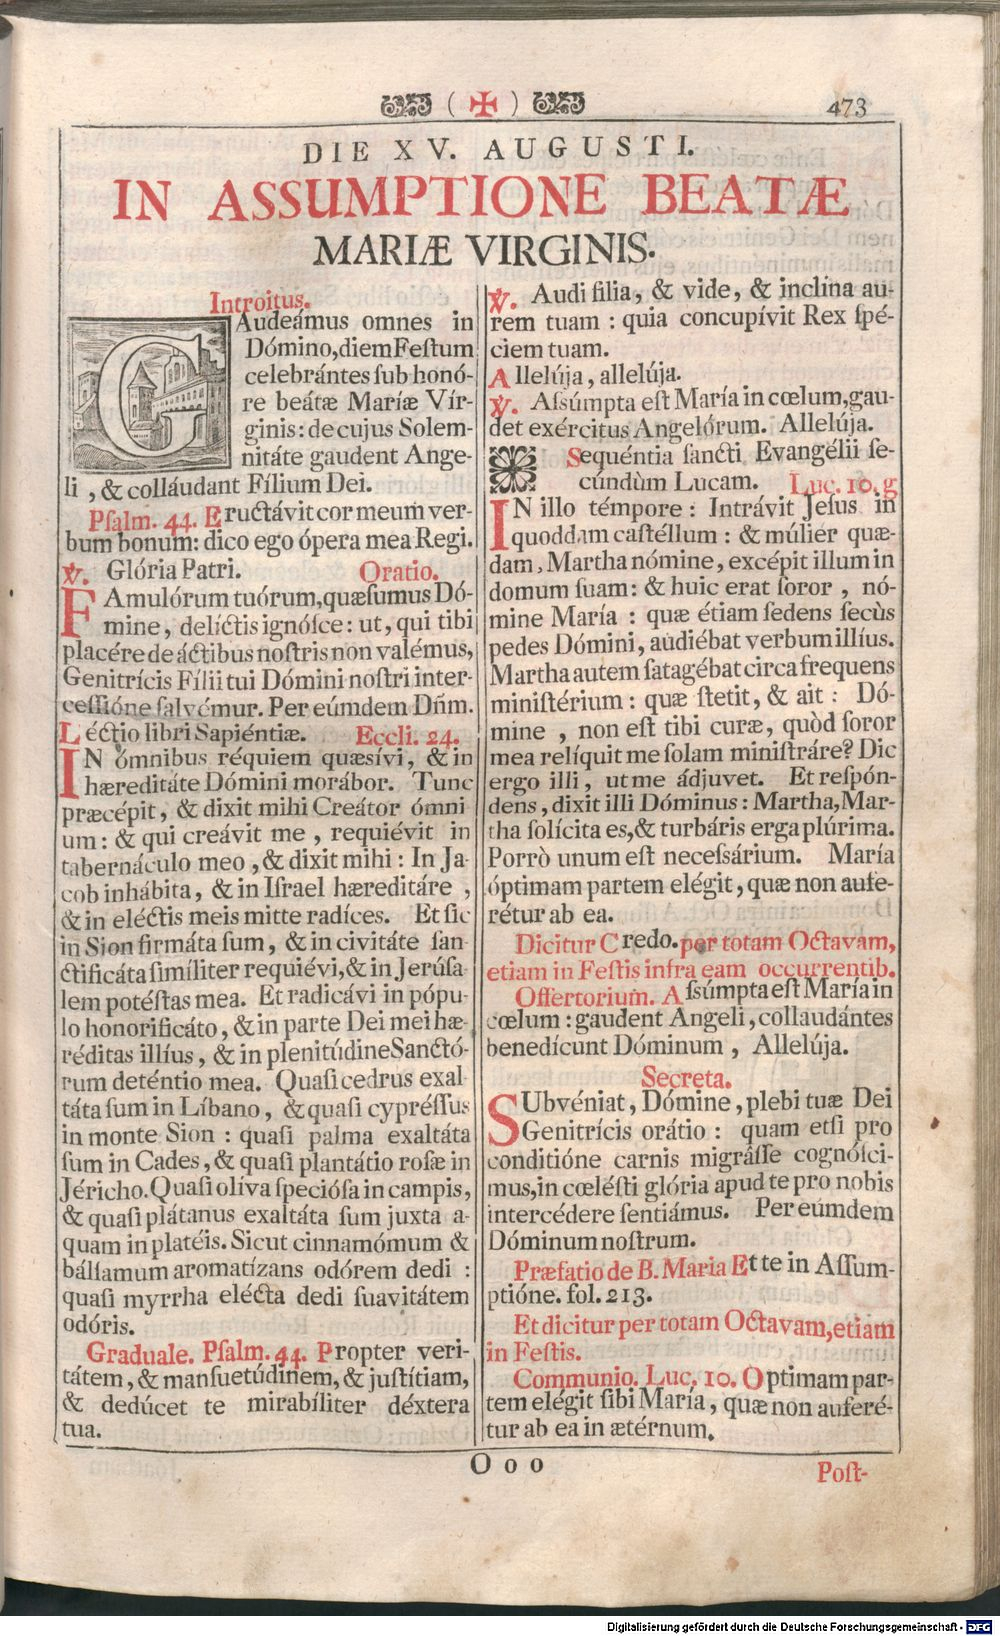 ( ✠ ) 473
DIE XV. AUGUSTI.
IN ASSUMPTIONE BEATÆ
MARIÆ VIRGINIS.
Introitus.
GAudeámus omnes in
Dómino, diem Feſtum
celebrántes ſub honó-
re beátæ Maríæ Vír-
ginis: de cujus Solem-
nitáte gaudent Ange-
li , & colláudant Fílium Dei.
Pſalm. 44. Eructávit cor meum ver-
bum bonum: dico ego ópera mea Regi.
℣. Glória Patri. Oratio.
FAmulórum tuórum, quæſumus Dó-
mine, delíctis ignóſce: ut, qui tibi
placére de áctibus noſtris non valémus,
Genitrícis Fílii tui Dómini noſtri inter-
ceſſióne ſalvémur. Per eúmdem Dn̄m.
Léctio libri Sapiéntiæ. Eccli. 24.
IN ómnibus réquiem quæsívi, & in
hæreditáte Dómini morábor. Tunc
præcépit, & dixit mihi Creátor ómni
um: & qui creávit me , requiévit in
tabernáculo meo , & dixit mihi: In Ja-
cob inhábita, & in Iſrael hæreditáre ,
& in eléctis meis mitte radíces. Et ſic
in Sion firmáta ſum, & in civitáte ſan
ctificáta ſimíliter requiévi, & in Jerúſa-
lem potéſtas mea. Et radicávi in pópu-
lo honorificáto, & in parte Dei mei hæ-
réditas illíus, & in plenitúdine Sanctó-
rum deténtio mea. Quaſi cedrus exal-
táta ſum in Líbano, & quaſi cypréſſus
in monte Sion : quaſi palma exaltáta
ſum in Cades, & quaſi plantátio roſæ in
Jéricho. Quaſi olíva ſpecióſa in campis,
& quaſi plátanus exaltáta ſum juxta a-
quam in platéis. Sicut cinnamómum &
bálſamum aromatízans odórem dedi :
quaſi myrrha elécta dedi ſuavitátem
odóris.
Graduale. Pſalm. 44. Propter veri-
tátem, & manſuetúdinem, & juſtítiam,
& dedúcet te mirabíliter déxtera
tua.
℣. Audi filia, & vide, & inclina au-
rem tuam : quia concupívit Rex ſpé-
ciem tuam.
Allelúja, allelúja.
℣. Aſsúmpta eſt María in cœlum, gau-
det exércitus Angelórum. Allelúja.
Sequéntia ſancti Evangélii ſe-
cúndùm Lucam. Luc. 10. g
IN illo témpore: Intrávit Jeſus in
quoddam caſtéllum : & múlier quæ-
dam, Martha nómine, excépit illum in
domum ſuam: & huic erat ſoror , nó-
mine María : quæ étiam ſedens ſecùs
pedes Dómini, audiébat verbum illíus.
Martha autem ſatagébat circa frequens
miniſtérium : quæ ſtetit, & ait : Dó-
mine , non eſt tibi curæ, quòd ſoror
mea relíquit me ſolam miniſtráre? Dic
ergo illi, ut me ádjuvet. Et reſpón-
dens, dixit illi Dóminus: Martha, Mar-
tha ſolícita es, & turbáris erga plúrima.
Porrò unum eſt neceſsárium. María
óptimam partem elégit, quæ non aufe-
rétur ab ea.
Dicitur Credo. per totam Octavam,
etiam in Feſtis infra eam occurrentib.
Offertorium. Aſsúmpta eſt María in
cœlum : gaudent Angeli, collaudántes
benedícunt Dóminum, Allelúja.
Secreta.
SUbvéniat, Dómine, plebi tuæ Dei
Genitrícis orátio : quam etſi pro
conditióne carnis migráſſe cognóſci-
mus, in cœléſti glória apud te pro nobis
intercédere ſentiámus. Per eúmdem
Dóminum noſtrum.
Præfatio de B. Maria Et te in Aſſum-
ptióne. fol. 213.
Et dicitur per totam Octavam, etiam
in Feſtis.
Communio. Luc. 10. Optimam par-
tem elégit ſibi María, quæ non auferé-
tur ab ea in ætérnum.
Ooo
Poſt-
Digitalisierung gefördert durch die Deutsche Forschungsgemeinschaft - DFG